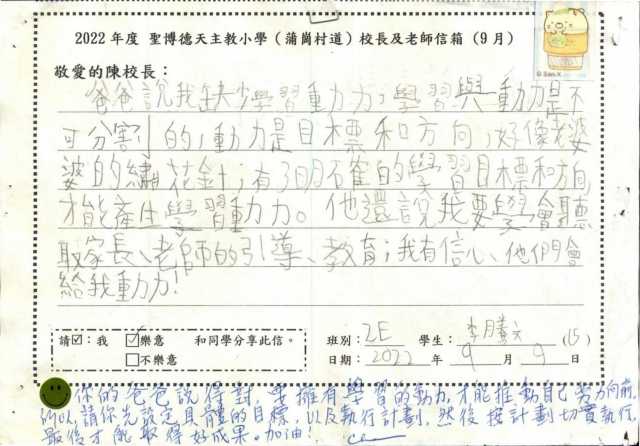 2022 年度 聖博德天主教小學（蒲崗村道）校長及老師信箱（9月）
敬愛的陳校長：
爸爸說我缺少學習動力，學習與動力是不
可分割的，動力是目標和方向，好像老婆
婆的繡花針；有了明確的學習目標和方向
才能產生學習動力。他還說我要學會聽
取家長、老師的引導、教育；我有信心、他們會
給我動力！
請☑：我 ☑樂意 和同學分享此信。
☐不樂意
班別：2E 學生：李騰文 (15)
日期：2022 年 9 月 9 日
你的爸爸說得對，要擁有學習的動力，才能推動自己努力向前。
所以請你先設定具體的目標，以及執行計劃，然後按計劃切實執行，
最後才能取得好成果。加油！